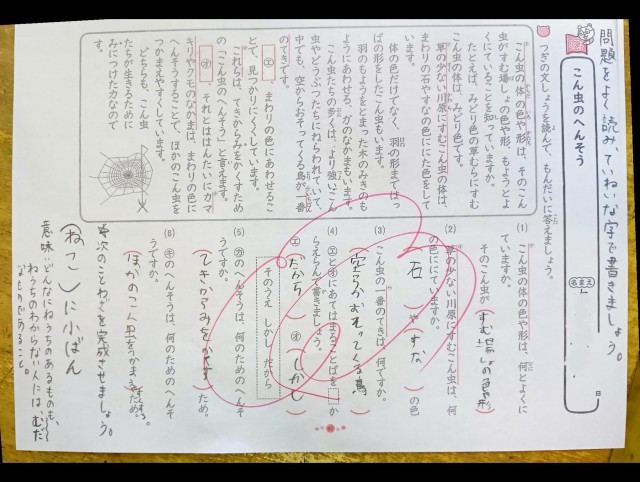 問題をよく読み、ていねいな字で書きましょう。
こん虫のへんそう
名まえ
日
つぎの文しょうを読んで、もんだいに答えましょう。
こん虫の体の色や形は、そのこん
虫がすむ場しょの色や形、もようとよ
くにていることを知っていますか。
たとえば、みどり色の草むらにすむ
こん虫の体は、みどり色です。
草の少ない川原にすむこん虫の体は、
まわりの石やすなの色ににた色をして
います。
体の色だけでなく、羽の形まではっ
ぱの形をしたこん虫もいます。
羽のもようをとまった木のみきのも
ようにあわせる、ガのなかまもいます。
こん虫たちの多くは、より強いこん
虫やどうぶつたちにねらわれていて、
中でも、空からおそってくる鳥が一番
のてきです。
エ、まわりの色にあわせるこ
とで、見つかりにくくしています。
これらは、てきからみをかくすため
の「こん虫のへんそう」と言えます。
オ、それとははんたいにカマ
キリやクモのなかまは、まわりの色に
へんそうすることで、ほかのこん虫を
つかまえやすくしています。
どちらも、こん虫
たちが生きるために
みにつけた力なので
す。
(1) こん虫の体の色や形は、何とよくに
ていますか。
そのこん虫が(すむ場しょの色や形)
(2) 草の少ない川原にすむこん虫は、何
の色ににていますか。
(石)や(すな)の色
(3) こん虫の一番のてきは、何ですか。
(空からおそってくる鳥)
(4) エとオにあてはまることばを□か
らえらんで書きましょう。
エ(だから) オ(しかし)
そのうえ しかし だから
(5) カのへんそうは、何のためのへんそ
うですか。
(てきからみをかくす)ため。
(6) キのへんそうは、何のためのへんそ
うですか。
(ほかのこん虫をつかまえやすくする)ため。
次のことわざを完成させましょう。
(ねこ)に小ばん
意味:どんなにねうちのあるものも、
ねうちのわからない人にはむだ
なものであること。